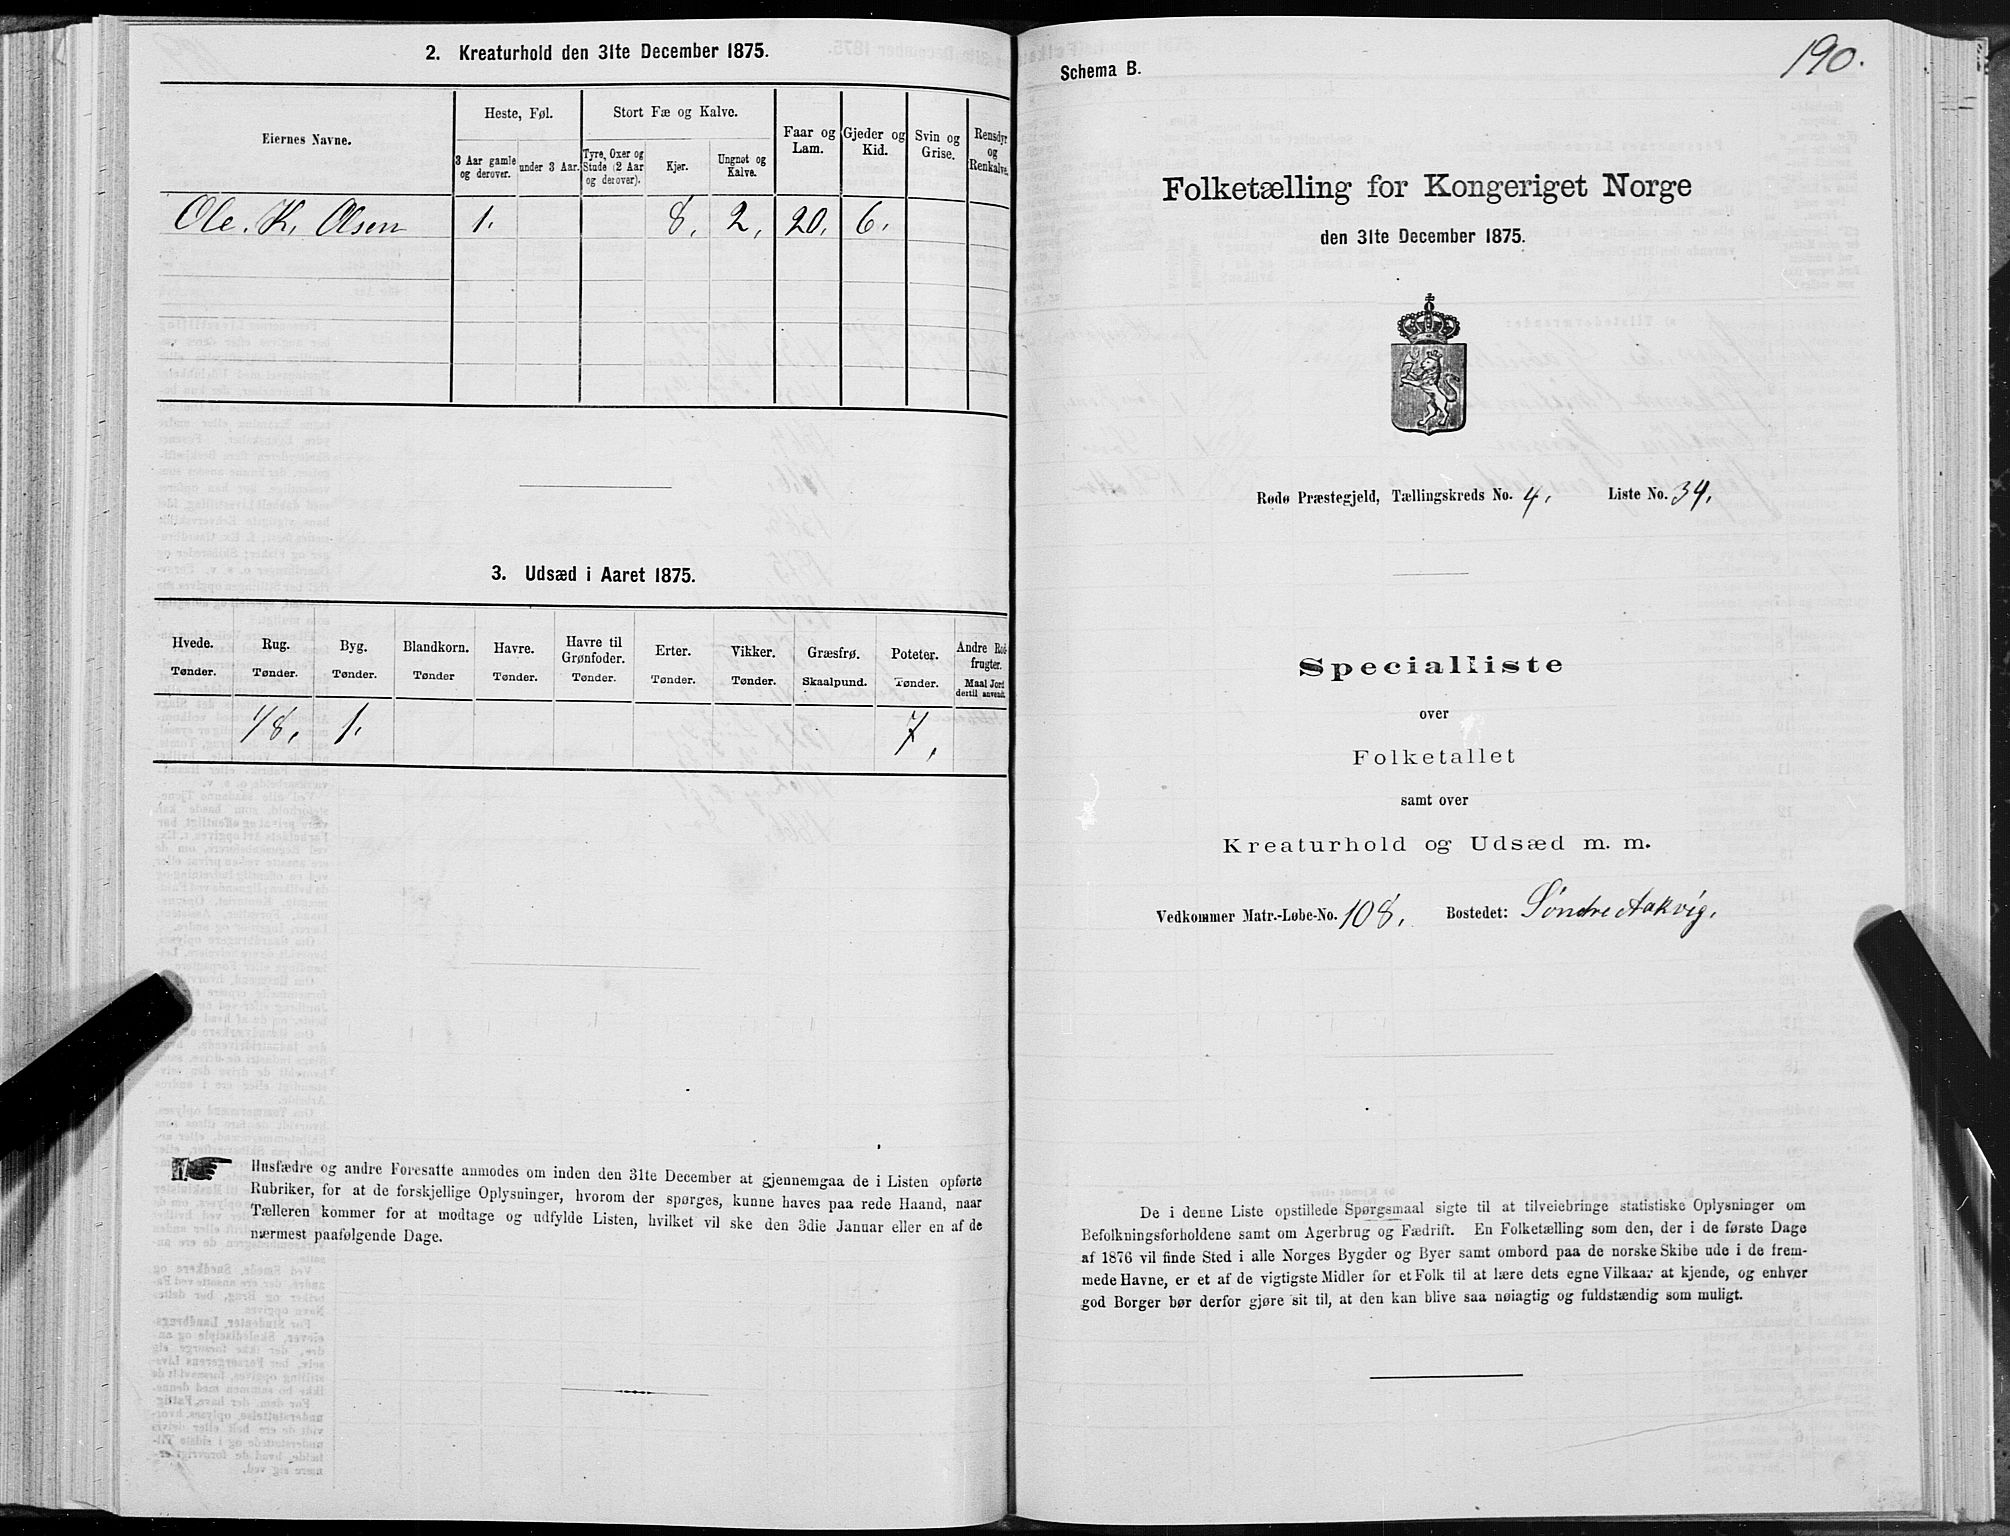 2. Kreaturhold den 31te December 1875.
Eiernes Navne.
Heste, Føl.
Stort Fæ og Kalve.
Faar og Lam.
Gjeder og Kid.
Svin og Grise.
Rensdyr og Renkalve.
3 Aar gamle og derover.
under 3 Aar.
Tyre, Oxer og Stude (2 Aar og derover).
Kjør.
Ungnøt og Kalve.
Ole. K. Olsen 1. 8, 2, 20, 6,
3. Udsæd i Aaret 1875.
Hvede. Rug. Byg. Blandkorn. Havre. Havre til Grønfoder. Erter. Vikker. Græsfrø. Poteter. Andre Rodfrugter.
Tønder. Tønder. Tønder. Tønder Tønder. Tønder. Tønder. Tønder. Skaalpund. Tønder. Maal Jord dertil anvendt.
1/8, 1. 7,
Husfædre og andre Foresatte anmodes om inden den 31te December at gjennemgaa de i Listen opførte
Rubriker, for at de forskjellige Oplysninger, hvorom der spørges, kunne haves paa rede Haand, naar
Tælleren kommer for at modtage og udfylde Listen, hvilket vil ske den 3die Januar eller en af de
nærmest paafølgende Dage.
190.
Schema B.
Folketælling for Kongeriget Norge
den 31te December 1875.
Rødø Præstegjeld, Tællingskreds No. 4, Liste No. 34,
Specialliste
over
Folketallet
samt over
Kreaturhold og Udsæd m. m.
Vedkommer Matr.-Løbe-No. 108, Bostedet: Søndre Aakvig,
De i denne Liste opstillede Spørgsmaal sigte til at tilveiebringe statistiske Oplysninger om
Befolkningsforholdene samt om Agerbrug og Fædrift. En Folketælling som den, der i de første Dage
af 1876 vil finde Sted i alle Norges Bygder og Byer samt ombord paa de norske Skibe ude i de frem-
mede Havne, er et af de vigtigste Midler for et Folk til at lære dets egne Vilkaar at kjende, og enhver
god Borger bør derfor gjøre sit til, at den kan blive saa nøiagtig og fuldstændig som muligt.